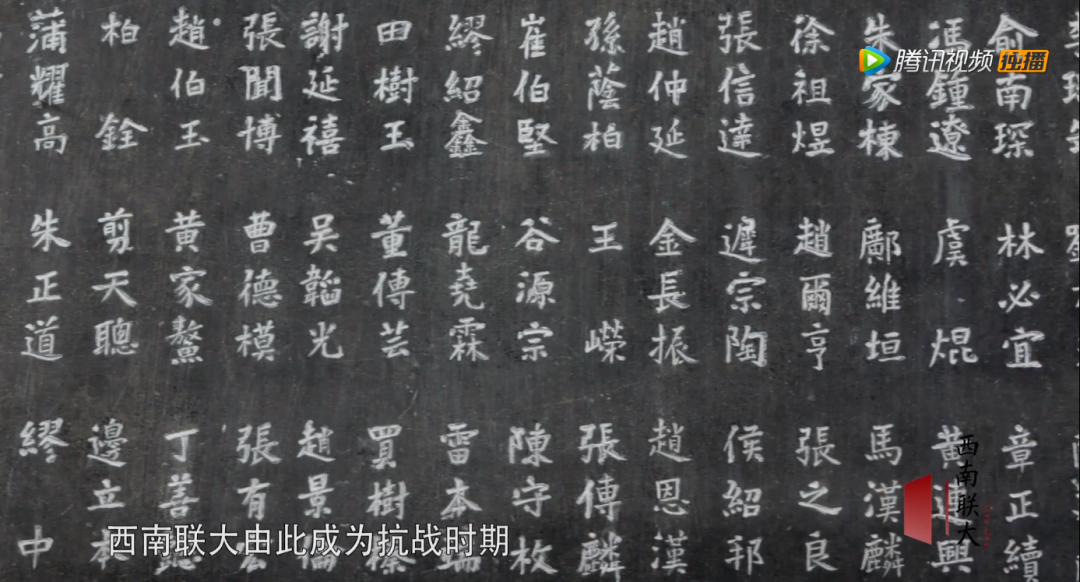 腾讯视频 独播
俞南琛 林必宜 章正續
馮鐘遼 虞焜 黄興
朱家棟 鄺維垣 馬漢麟
徐祖煜 趙爾亨 張之良
張信達 遲宗陶 侯紹邦
趙仲延 金長振 趙恩漢
孫蔭柏 王嶸 張傳麟
崔伯堅 谷源宗 陳守枚
繆紹鑫 龍堯霖 雷本
田樹玉 董傳芸 買樹
謝延禧 吴韜光 趙景
張聞博 曹德模 張有
趙伯玉 黄家鰲 丁善
柏銓 剪天聰 邊立
蒲耀高 朱正道 繆中
西南联大
西南联大由此成为抗战时期